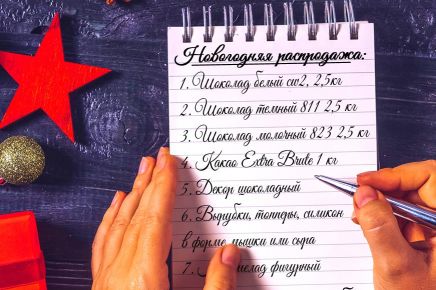 Новогодняя распродажа:
1. Шоколад белый cw2, 2,5кг
2. Шоколад темный 811 2,5 кг
3. Шоколад молочный 823 2,5 кг
4. Какао Extra Brute 1 кг
5. Декор шоколадный
6. Вырубки, топперы, силикон
в форме мышки или сыра
7. фигурный